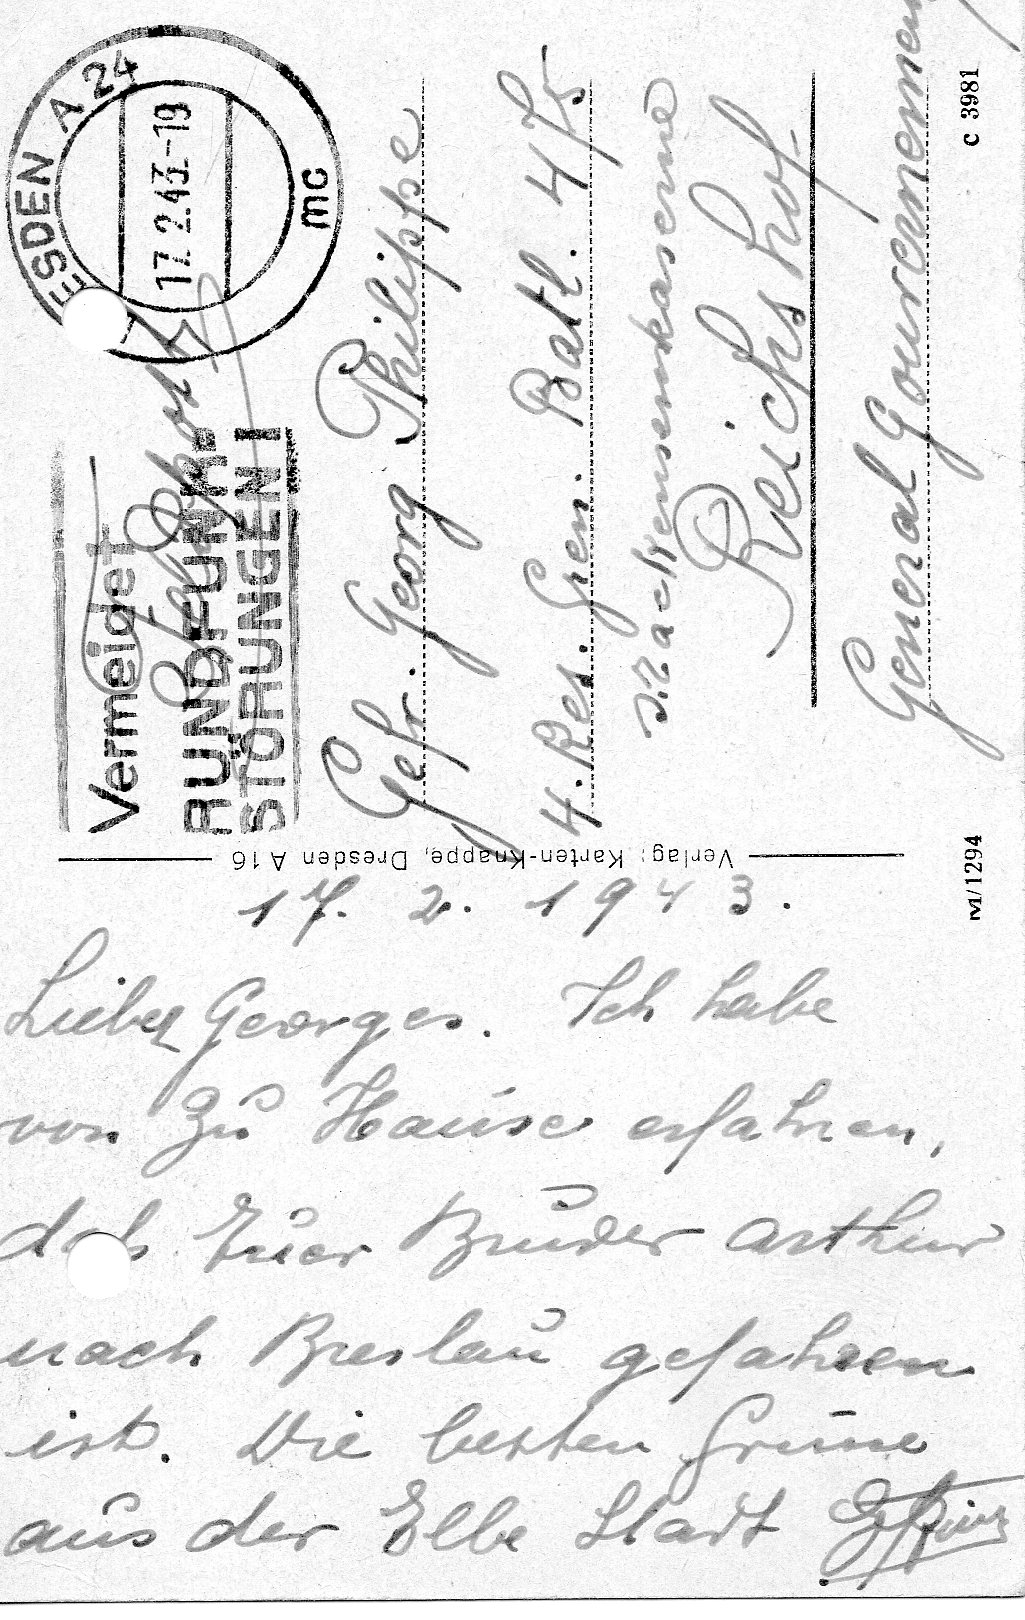 DRESDEN A 24
17.2.43.-19
mc
Vermeidet
RUNDFUNK-
STÖRUNGEN!
Feldpost
Gefr. Georg Philippe
4. Res. Gren. Batl. 475
Mackensenkaserne
Reichshof.
General Gouvernement
c 3981
M/1294
Verlag: Karten-Knappe, Dresden A 16
17. 2. 1943.
Lieber Georges. Ich habe
von zu Hause erfahren,
daß Euer Bruder Arthur
nach Breslau gefahren
ist. Die besten Grüsse
aus der Elbe Stadt